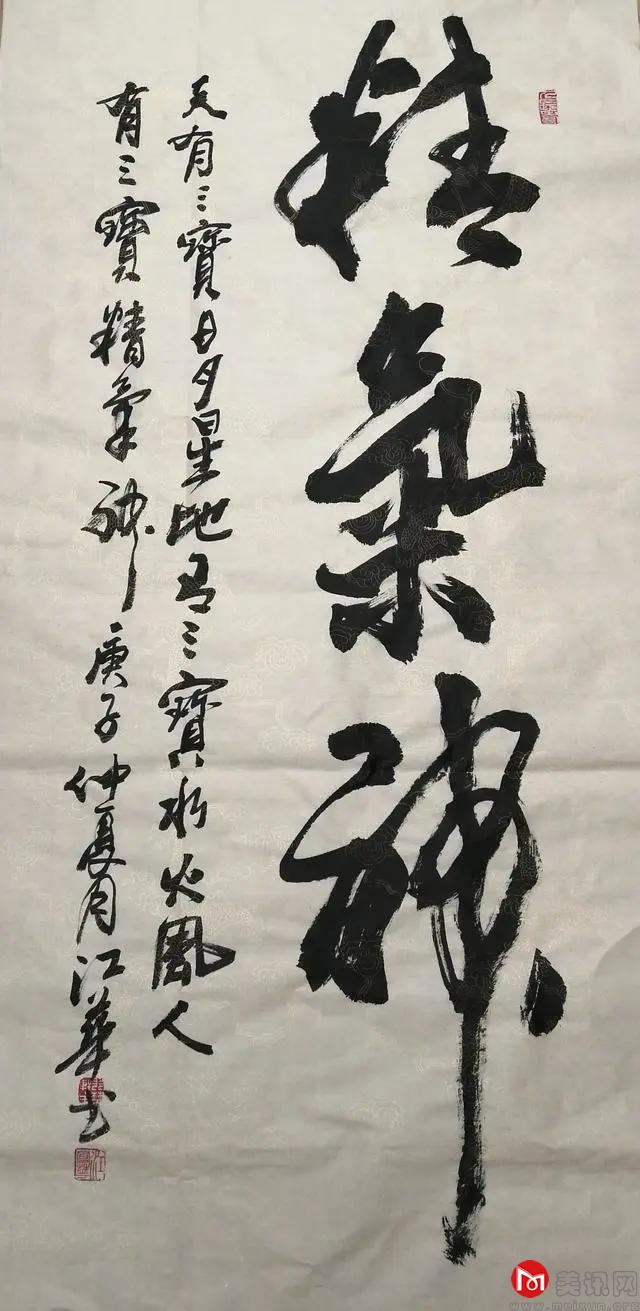 精氣神
天有三寶日月星地有三寶水火風人
有三寶精氣神庚子仲夏月江華书
美讯网
www.meixun.com